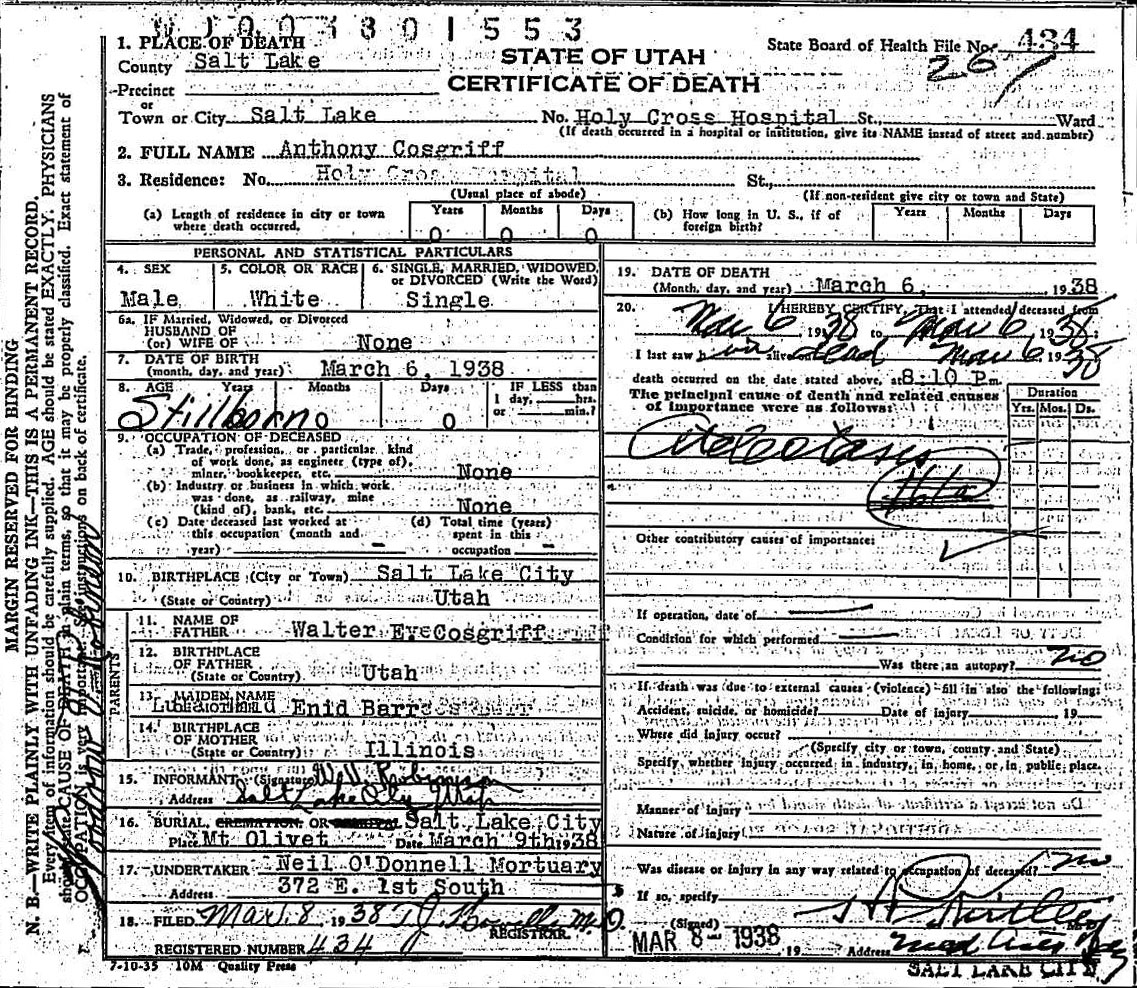 1. PLACE OF DEATH
County Salt Lake
Precinct
or
Town or City Salt Lake No. Holy Cross Hospital St., Ward
(If death occurred in a hospital or institution, give its NAME instead of street and number)
STATE OF UTAH
CERTIFICATE OF DEATH
State Board of Health File No. 434
26
2. FULL NAME Anthony Cosgriff
3. Residence: No. Holy Cross Hospital St.,
(Usual place of abode) (If non-resident give city or town and State)
(a) Length of residence in city or town where death occurred. Years 0 Months 0 Days 0
(b) How long in U. S., if of foreign birth? Years Months Days
PERSONAL AND STATISTICAL PARTICULARS
4. SEX Male
5. COLOR OR RACE White
6. SINGLE, MARRIED, WIDOWED, or DIVORCED (Write the Word) Single
6a. IF Married, Widowed, or Divorced
HUSBAND OF
(or) WIFE OF None
7. DATE OF BIRTH
(month, day, and year) March 6, 1938
8. AGE Years Months Days IF LESS than
1 day, hrs.
or min.?
Stillborn 0 0
9. OCCUPATION OF DECEASED
(a) Trade, profession, or particular kind
of work done, as engineer (type of),
miner, bookkeeper, etc. None
(b) Industry or business in which work
was done, as railway, mine
(kind of), bank, etc. None
(c) Date deceased last worked at
this occupation (month and
year) -
(d) Total time (years)
spent in this
occupation -
10. BIRTHPLACE (City or Town) Salt Lake City
(State or Country) Utah
PARENTS
11. NAME OF
FATHER Walter Eve Cosgriff
12. BIRTHPLACE
OF FATHER
(State or Country) Utah
13. MAIDEN NAME
Enid Barr
14. BIRTHPLACE
OF MOTHER
(State or Country) Illinois
15. INFORMANT (Signature) Will Robinson
Address Salt Lake City Utah
16. BURIAL, CREMATION, OR REMOVAL Salt Lake City
Place Mt Olivet Date March 9th 1938
17. UNDERTAKER Neil O'Donnell Mortuary
Address 372 E. 1st South
18. FILED Mar. 8 1938 M.D.
REGISTRAR.
REGISTERED NUMBER 434
7-10-35 10M Quality Press
19. DATE OF DEATH
(Month, day, and year) March 6, 1938
20. I HEREBY CERTIFY, That I attended deceased from
Mar 6 1938 to Mar 6 1938
I last saw him alive on dead Mar 6 1938
death occurred on the date stated above, at 8:10 P.m.
The principal cause of death and related causes
of importance were as follows:
Duration
Yrs. Mos. Ds.
Atelectasis
Other contributory causes of importance:
If operation, date of
Condition for which performed
Was there an autopsy? no
If death was due to external causes (violence) fill in also the following:
Accident, suicide, or homicide? Date of injury 19
Where did injury occur?
(Specify city or town, county and State)
Specify whether injury occurred in industry, in home, or in public place.
Manner of injury
Nature of injury
Was disease or injury in any way related to occupation of deceased? no
If so, specify
(Signed) M. D.
MAR 8- 1938 19 Address
SALT LAKE CITY
MARGIN RESERVED FOR BINDING
N. B.—WRITE PLAINLY WITH UNFADING INK—THIS IS A PERMANENT RECORD.
Every item of information should be carefully supplied. AGE should be stated EXACTLY. PHYSICIANS
should state CAUSE OF DEATH in plain terms, so that it may be properly classified. Exact statement of
OCCUPATION is very important. See instructions on back of certificate.